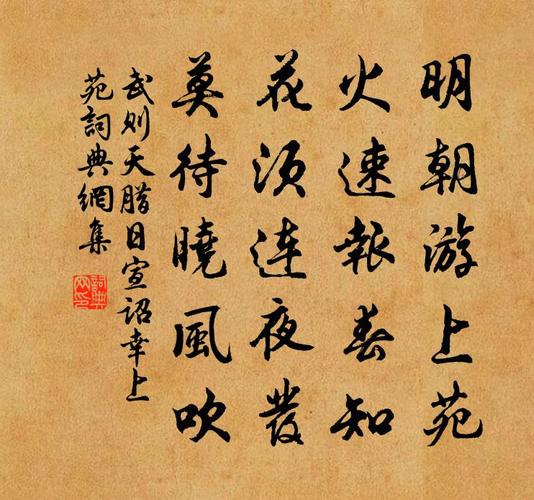 明朝游上苑
火速報春知
花須連夜發
莫待曉風吹
武则天腊日宣诏幸上
苑詞典網集
詞典網印